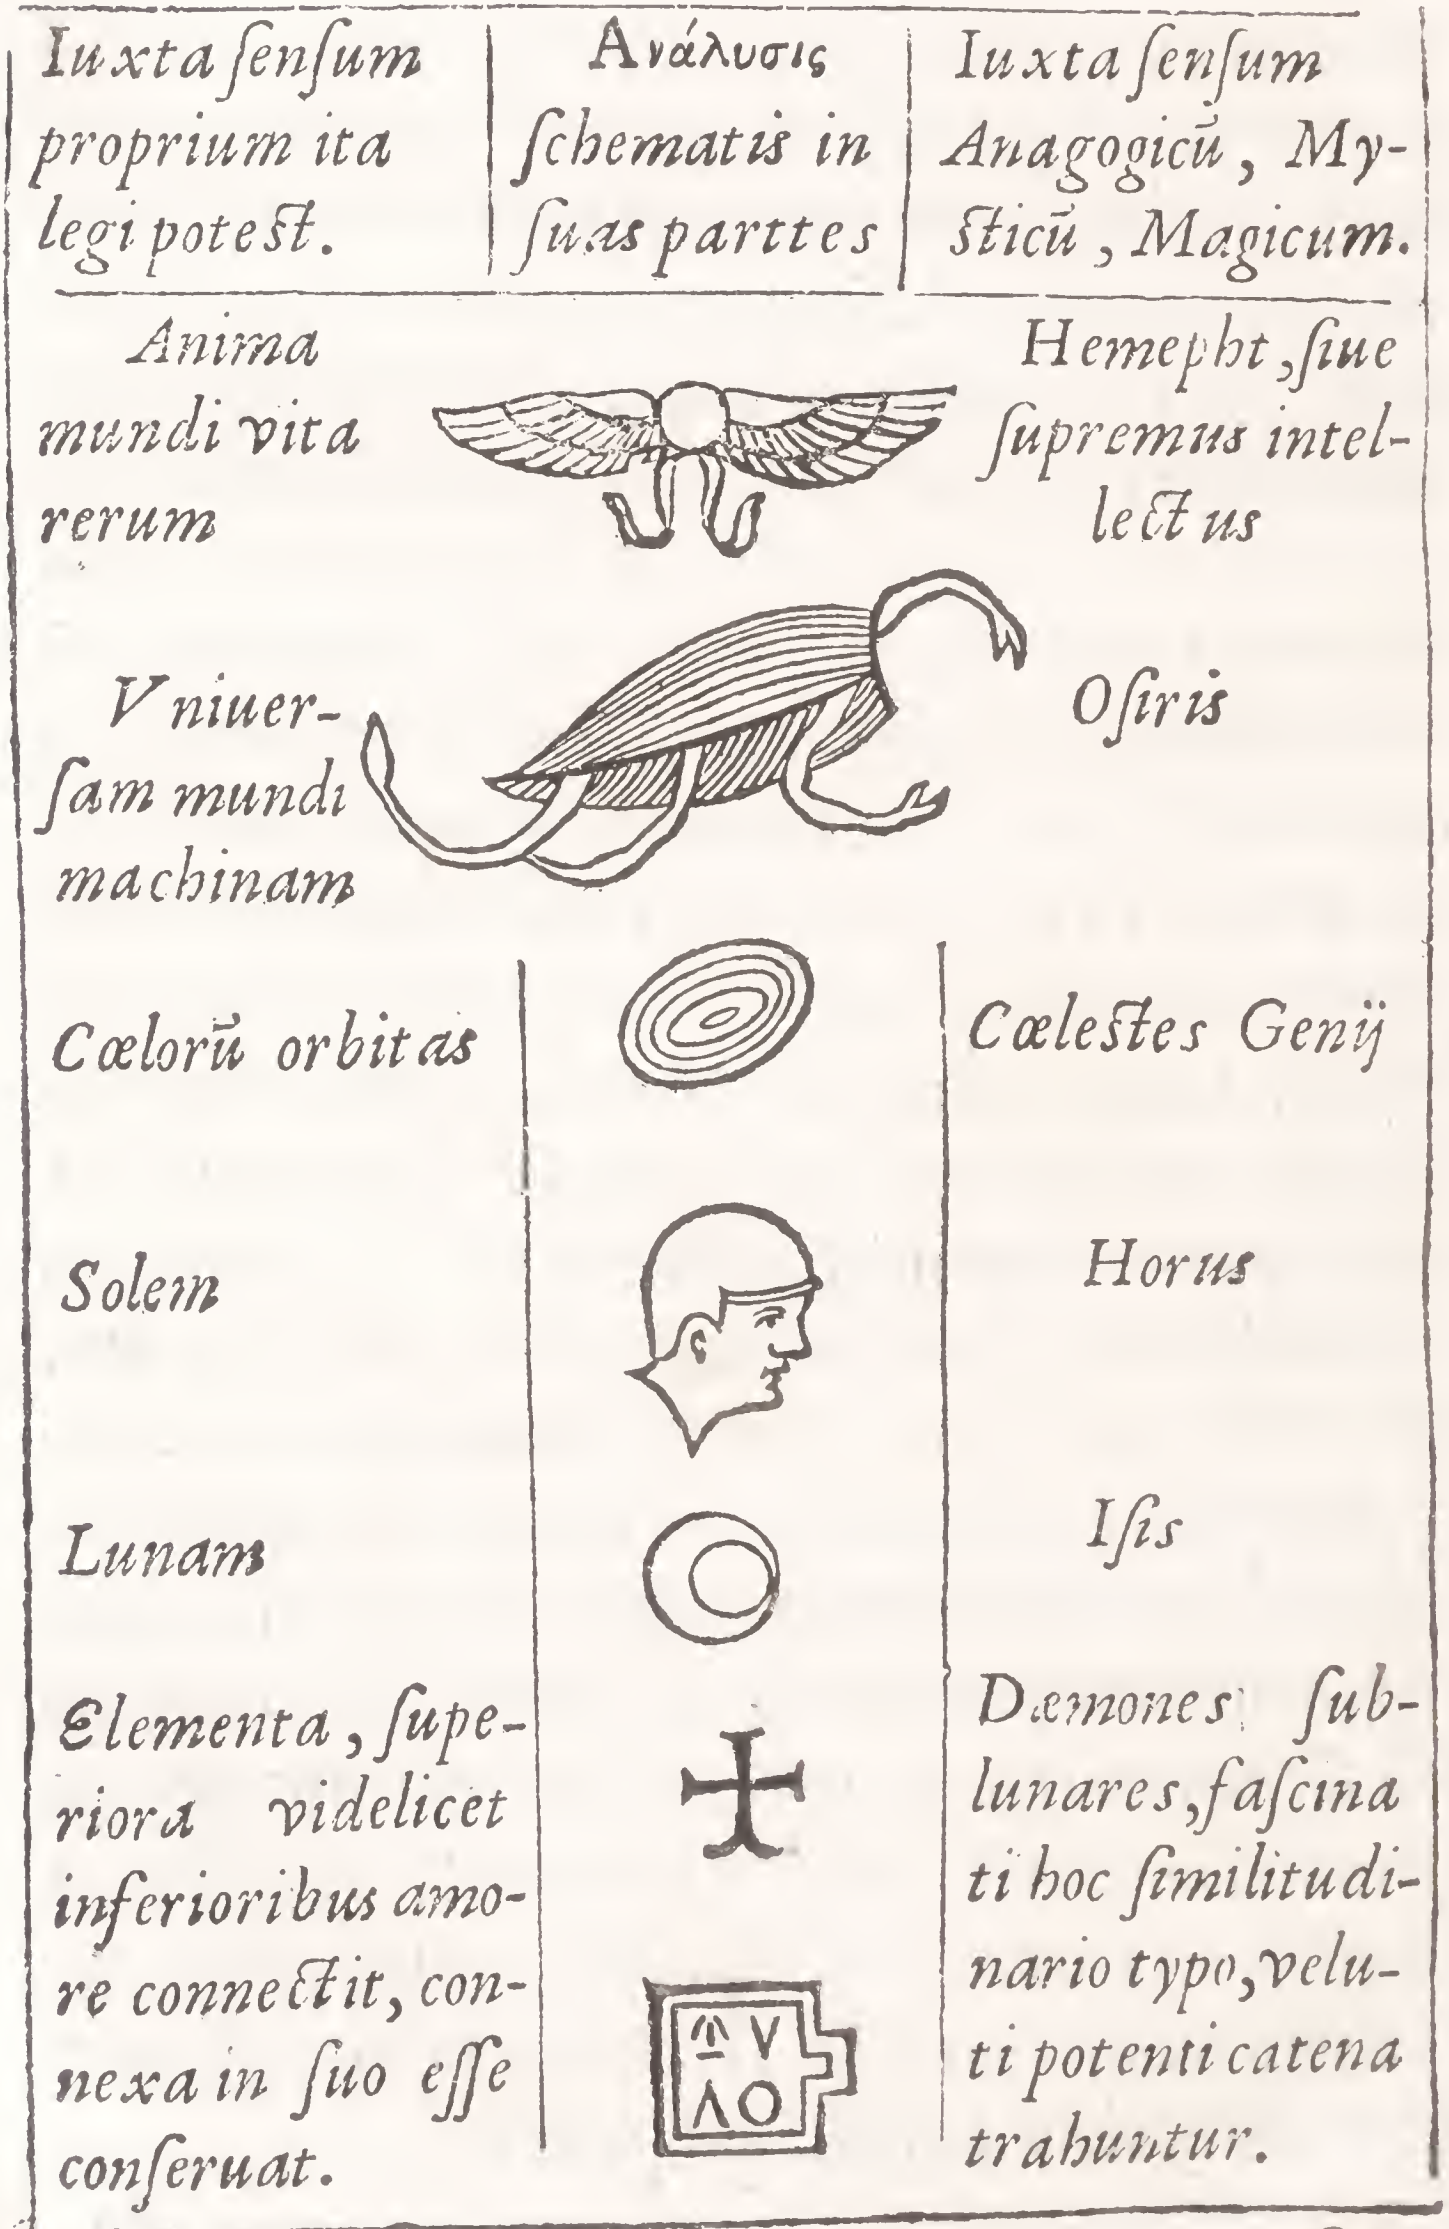 Iuxta ſenſum
proprium ita
legi poteſt.
Ανάλυσις
ſchematis in
ſuas parttes
Iuxta ſenſum
Anagogicū, My-
ſticū, Magicum.
Anima
mundi vita
rerum
Hemepht, ſiue
ſupremus intel-
lectus
Vniuer-
ſam mundi
machinam
Oſiris
Cœlorū orbitas
Cœleſtes Genij
Solem
Horus
Lunam
Iſis
Elementa, ſupe-
riora videlicet
inferioribus amo-
re connectit, con-
nexa in ſuo eſſe
conſeruat.
V
Λ O
Dæmones ſub-
lunares, faſcina
ti hoc ſimilitudi-
nario typo, velu-
ti potenti catena
trahuntur.